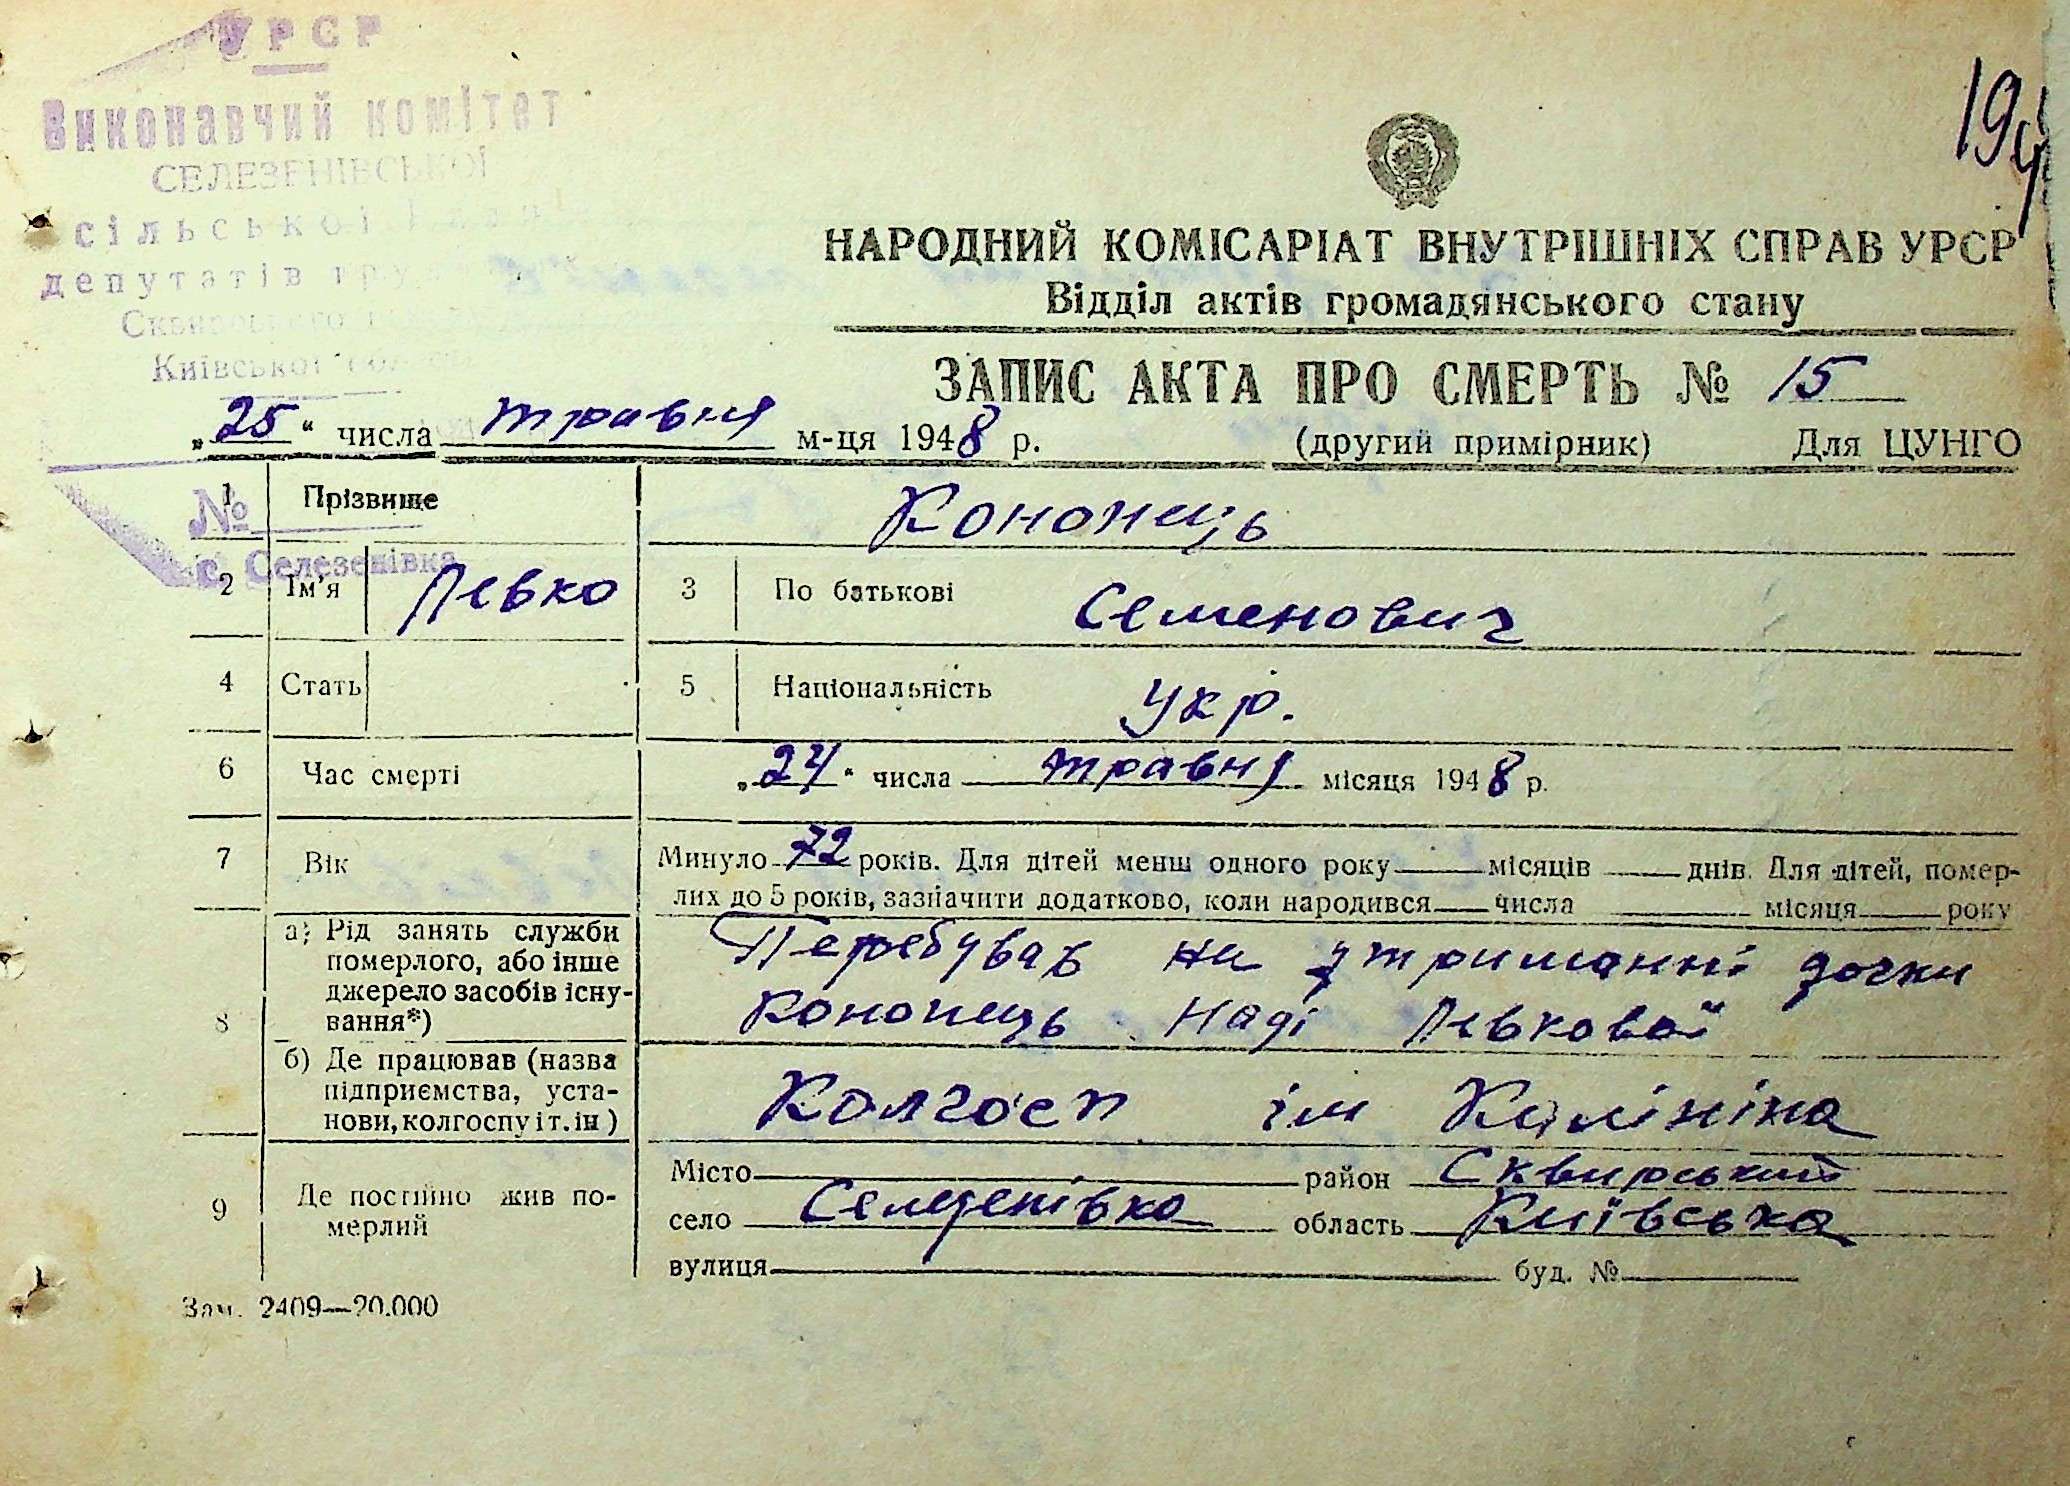 УРСР
Виконавчий комітет
СЕЛЕЗЕНІВСЬКОЇ
сільської Ради
депутатів тру
Сквирського
Київської
194
НАРОДНИЙ КОМІСАРІАТ ВНУТРІШНІХ СПРАВ УРСР
Відділ актів громадянського стану
ЗАПИС АКТА ПРО СМЕРТЬ № 15
„25“ числа травня м-ця 1948 р. (другий примірник) Для ЦУНГО
№
с. Селезенівка
1 Прізвище Кононець
2 Ім'я Левко 3 По батькові Семенович
4 Стать 5 Національність Укр.
6 Час смерті „24“ числа травня місяця 1948 р.
7 Вік Минуло 72 років. Для дітей менш одного року місяців днів. Для дітей, помер-
лих до 5 років, зазначити додатково, коли народився числа місяця року
8 а) Рід занять служби
померлого, або інше
джерело засобів існу-
вання*)
Перебував на утриманні дочки
Кононець Наді Левкової
б) Де працював (назва
підприємства, уста-
нови, колгоспу і т. ін)
Колгосп ім Калініна
9 Де постійно жив по-
мерлий
Місто район Сквирський
село Селезенівка область Київська
вулиця буд. №
Зам. 2409—20.000